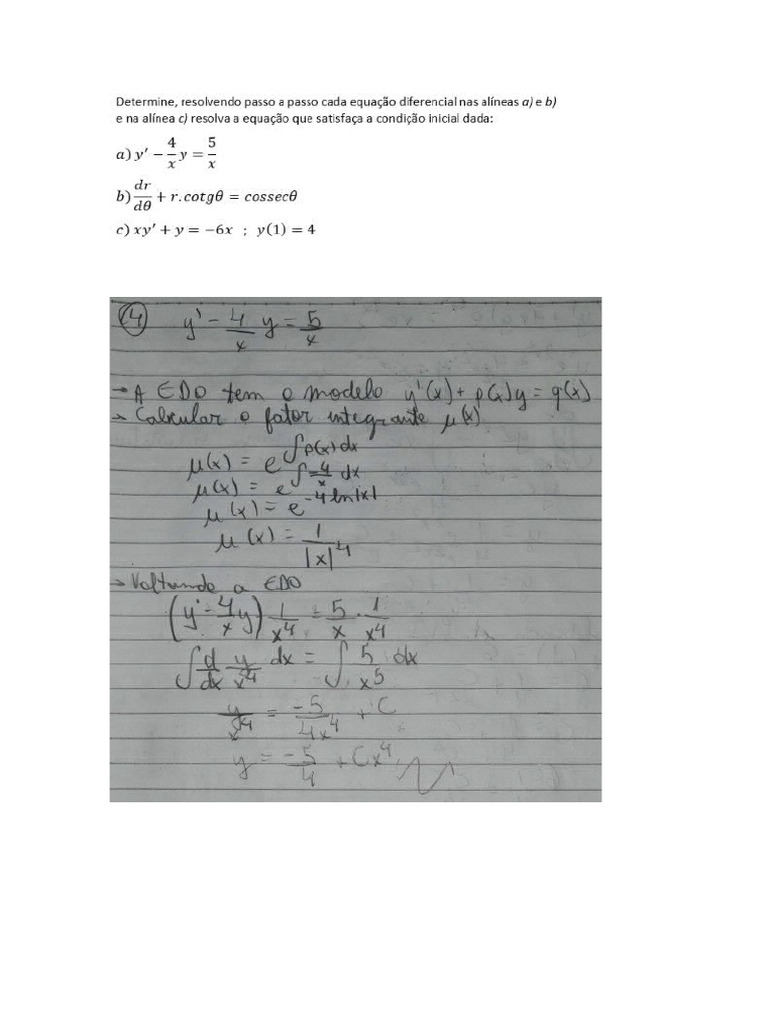 Determine, resolvendo passo a passo cada equação diferencial nas alíneas a) e b)
e na alínea c) resolva a equação que satisfaça a condição inicial dada:
a) y′ − 4/x y = 5/x
b) dr/dθ + r.cotgθ = cossecθ
c) xy′ + y = −6x ; y(1) = 4
(4) y' - 4/x y = 5/x
→ A EDO tem o modelo y'(x) + p(x)y = q(x)
→ Calcular o fator integrante μ(x)
μ(x) = e^∫p(x)dx
μ(x) = e^∫-4/x dx
μ(x) = e^-4ln|x|
μ(x) = 1/|x|^4
→ Voltando a EDO
(y' - 4/x y) 1/x^4 = 5/x · 1/x^4
∫ d/dx y/x^4 dx = ∫ 5/x^5 dx
y/x^4 = -5/4x^4 + C
y = -5/4 + Cx^4